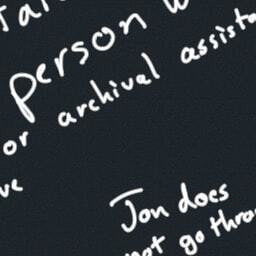 person w
or archival assista
ve
Jon does
not go thro